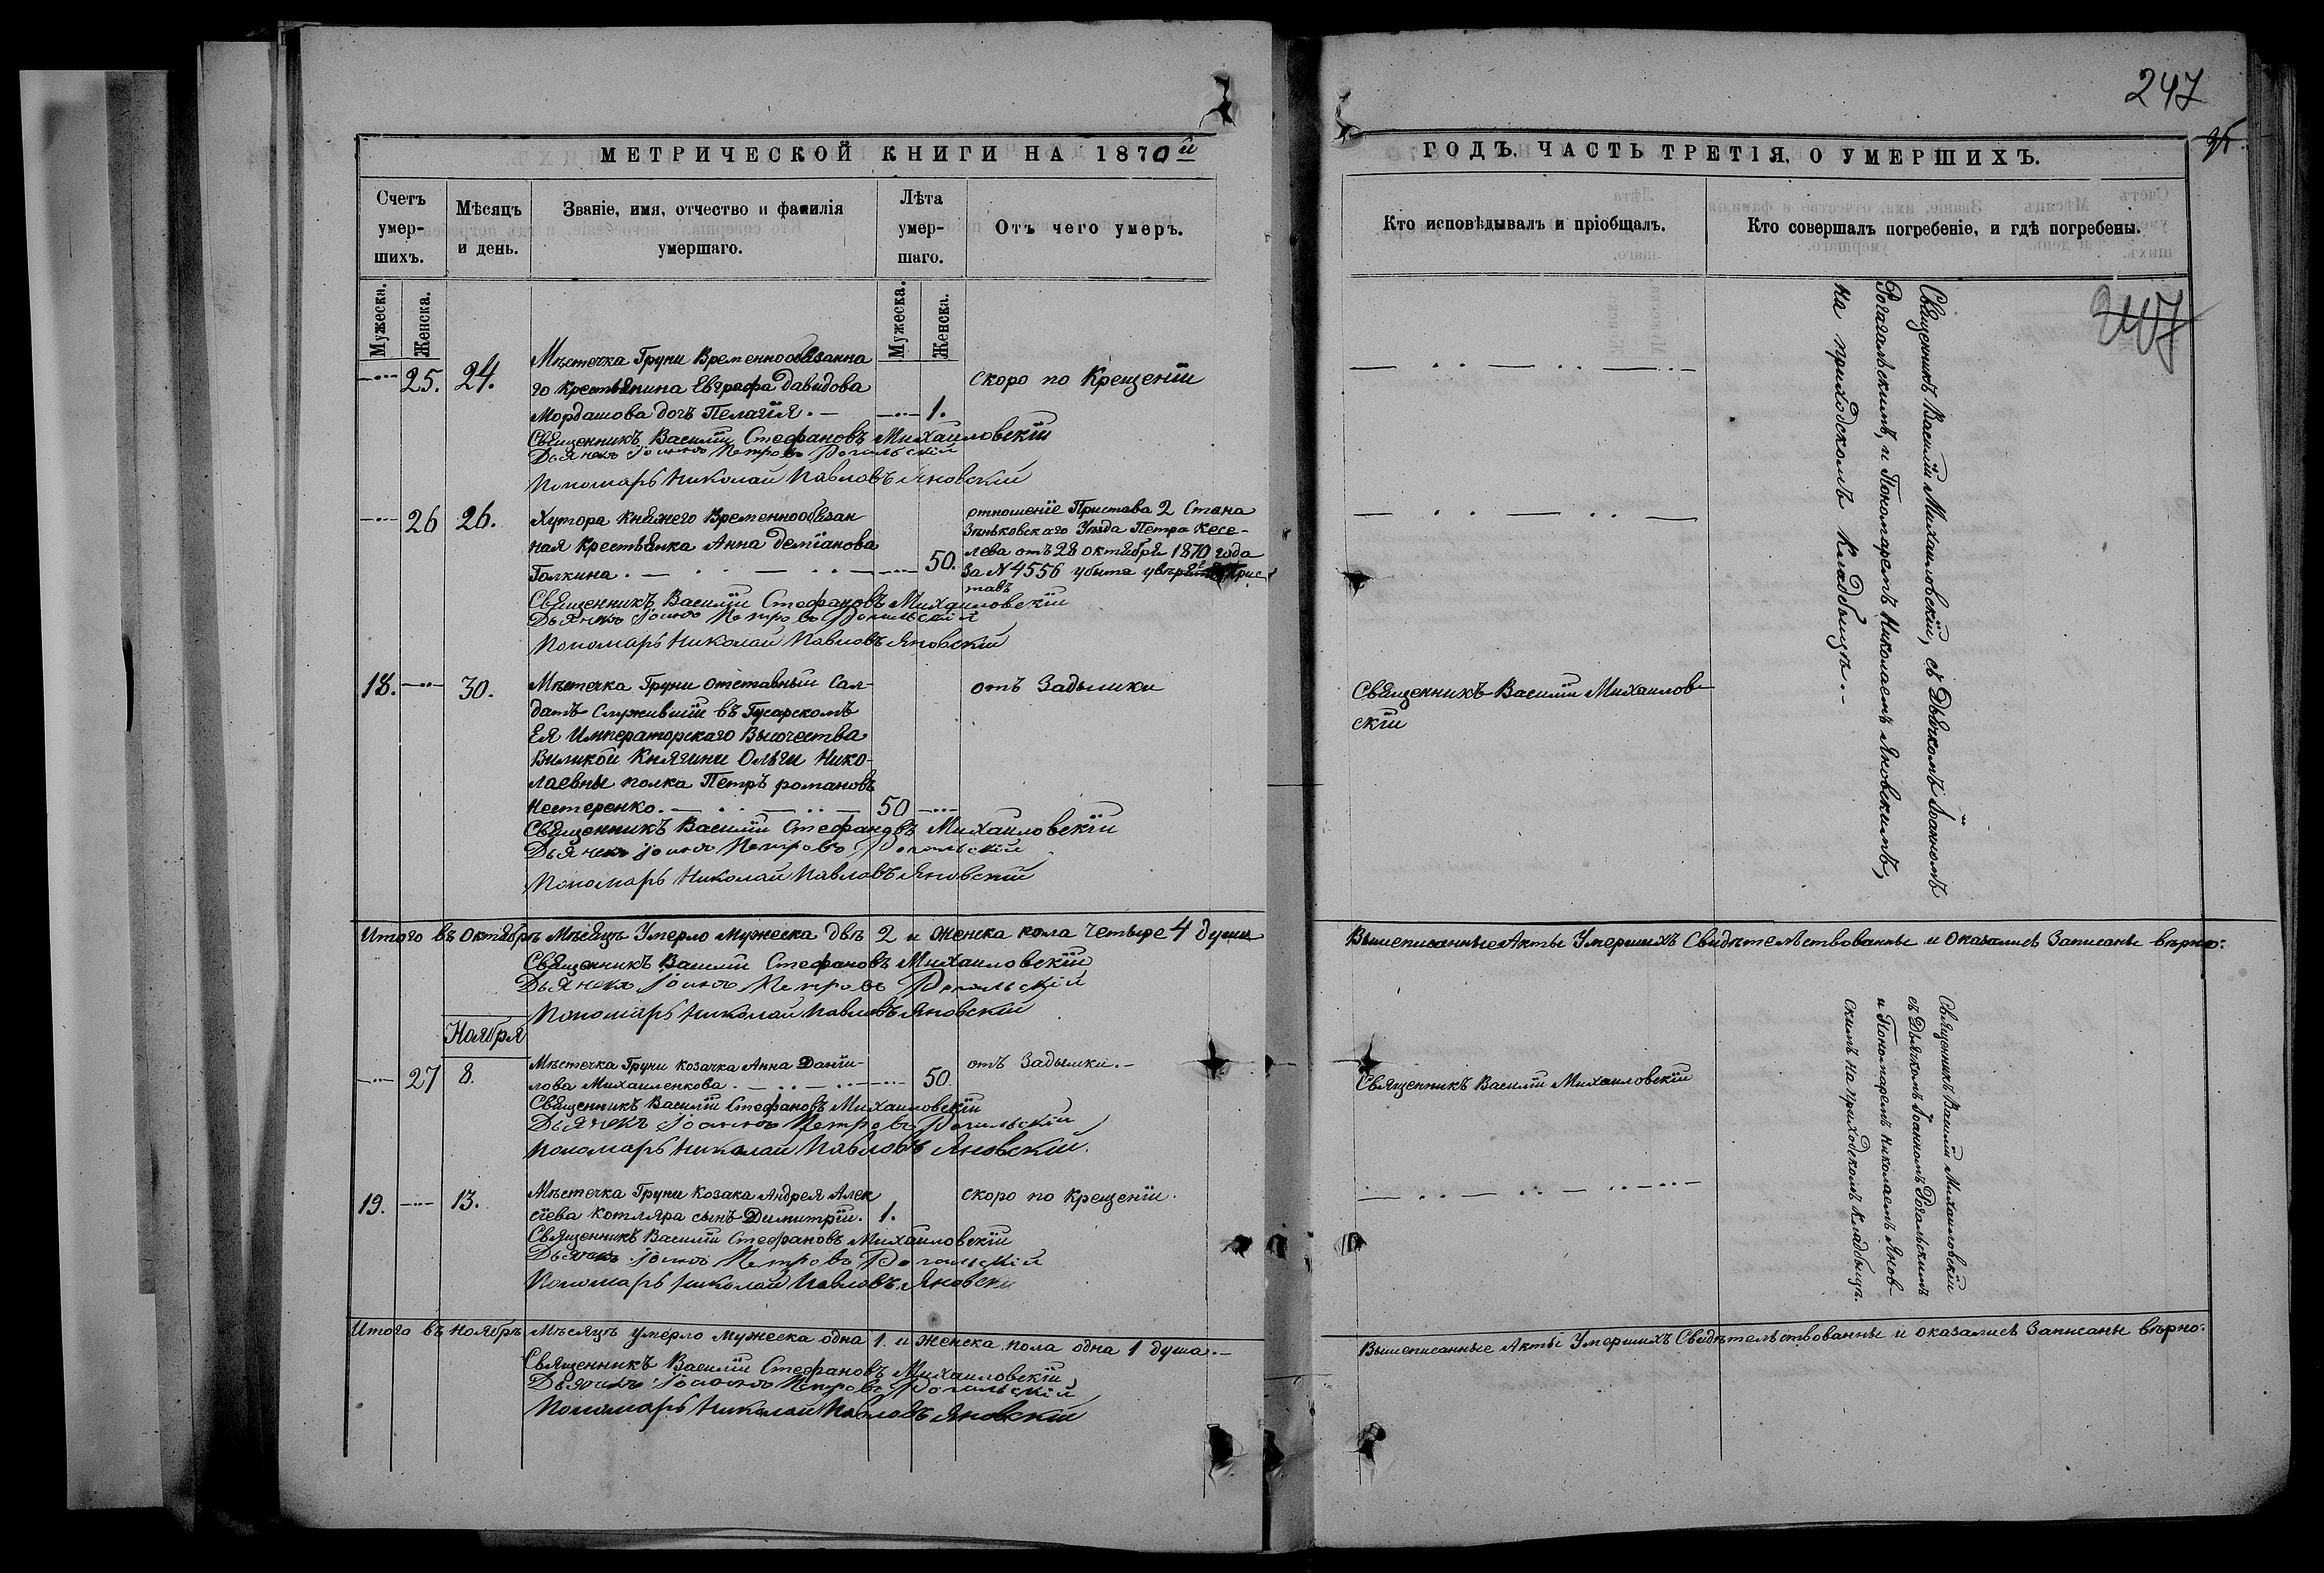 МЕТРИЧЕСКОЙ КНИГИ НА 1870й
Счетъ умер-шихъ.
Мѣсяцъ и день.
Званіе, имя, отчество и фамилія умершаго.
Лѣта умер-шаго.
Отъ чего умеръ.
Мужеска.
Женска.
Мужеска.
Женска.
Мѣстечка Груни Временнообязанна
25. 24. го крестьянина Евграфа Давидова скоро по Крещеніи
Мордашова дочъ Пелагія. — 1.
Священникъ Василій Стефановъ Михаиловскій
Дьячекъ Іоаннъ Петровъ Рогальскій
Пономарь Николай Павловъ Яновскій
26 26. Хутора Княжего Временнообязан
ная крестьянка Анна Деміанова
Галкина. 50.
отношеніе Пристава 2 Стана
Зѣньковскаго Уѣзда Петра Кесе-
лева отъ 28 октября 1870 года
За № 4556 убыта
Священникъ Василій Стефановъ Михаиловскій
Дьячекъ Іоаннъ Петровъ Рогальскій
Пономарь Николай Павловъ Яновскій
18. 30. Мѣстечка Груни отставный Сал- отъ Задышки
датъ Служившій въ Гусарскомъ
Ея Императорскаго Высочества
Виликой Княгини Ольги Нико-
лаевны полка Петръ романовъ
Нестеренко. 50
Священникъ Василій Стефановъ Михаиловскій
Дьячекъ Іоаннъ Петровъ Рогальскій
Пономарь Николай Павловъ Яновскій
Итого въ октябрѣ Мѣсяцѣ Умерло мужеска двѣ 2 и женска пола четыре 4 души
Священникъ Василій Стефановъ Михаиловскій
Дьячекъ Іоаннъ Петровъ Рогальскій
Пономарь Николай Павловъ Яновскій
Ноября
27 8. Мѣстечка Груни козачка Анна Даніи- отъ Задышки. —
лова Михаиленкова. 50.
Священникъ Василій Стефановъ Михаиловскій
Дьячекъ Іоаннъ Петровъ Рогальскій
Пономарь Николай Павловъ Яновскій.
19. 13. Мѣстечка Груни Козака Андрея Алек скоро по Крещеніи.
сіева котляра сынъ Димитрій. 1.
Священникъ Василій Стефановъ Михаиловскій
Дьячекъ Іоаннъ Петровъ Рогальскій
Пономарь Николай Павловъ Яновскій
Итого въ ноябрѣ Мѣсяцѣ умерло мужеска одна 1. и женска пола одна 1 душа. —
Священникъ Василій Стефановъ Михаиловскій
Дьячекъ Іоаннъ Петровъ Рогальскій
Пономарь Николай Павловъ Яновскій
247
ГОДЪ. ЧАСТЬ ТРЕТІЯ, О УМЕРШИХЪ.
Кто исповѣдывалъ и пріобщалъ.
Кто совершалъ погребеніе, и гдѣ погребены.
247
Священникъ Василій Михаиловскій, съ Дьячкомъ Іоанномъ
Рогальскимъ, и Пономаремъ Николаемъ Яновскимъ,
на приходскомъ Кладбищѣ. —
Священникъ Василій Михаилов-
скій
Вышеписанные Акты Умершихъ Свидѣтельствованны и оказались Записаны вѣрно:
Священникъ Василій Михаиловскій
Священникъ Василій Михаиловскій
съ Дьячкомъ Іоанномъ Рогальскимъ
и Пономаремъ Николаемъ Янов-
скимъ на приходскомъ кладбищѣ.
Вышеписанные Акты Умершихъ Свидѣтельствованны и оказались Записаны вѣрно: